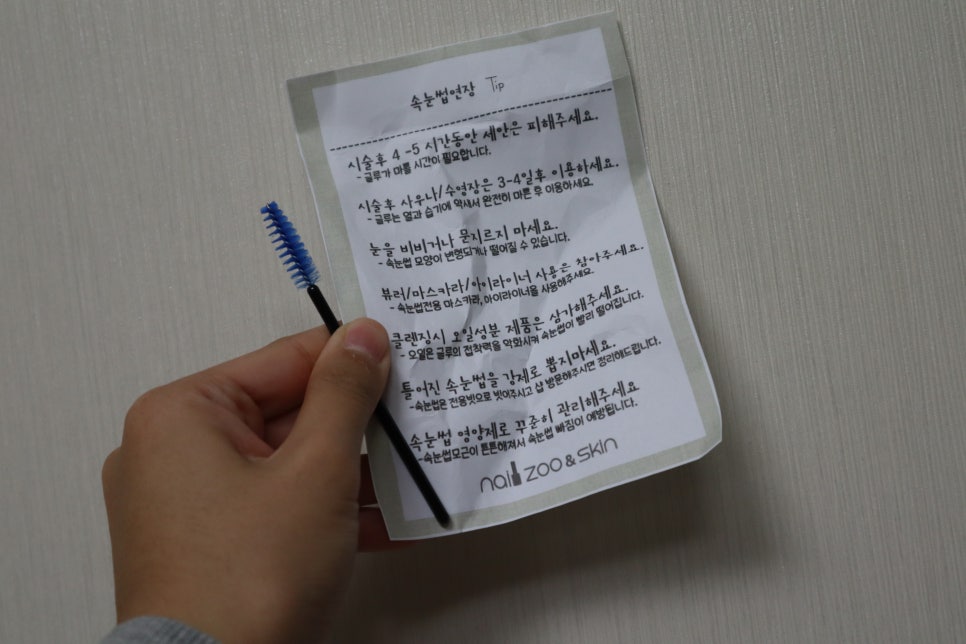 속눈썹연장 Tip
시술후 4-5 시간동안 세안은 피해주세요.
- 글루가 마를 시간이 필요합니다.
시술후 사우나/수영장은 3-4일후 이용하세요.
- 글루는 열과 습기에 약해서 완전히 마른 후 이용하세요
눈을 비비거나 문지르지 마세요.
- 속눈썹 모양이 변형되거나 떨어질 수 있습니다.
뷰러/마스카라/아이라이너 사용은 참아주세요.
- 속눈썹전용 마스카라, 아이라이너를 사용해주세요.
클렌징시 오일성분 제품은 삼가해주세요.
- 오일은 글루의 접착력을 약화시켜 속눈썹이 빨리 떨어집니다.
틀어진 속눈썹을 강제로 뽑지마세요.
-속눈썹은 전용빗으로 빗어주시고 샵 방문해주시면 정리해드립니다.
속눈썹 영양제로 꾸준히 관리해주세요
-속눈썹모근이 튼튼해져서 속눈썹 빠짐이 예방됩니다.
nail zoo & skin